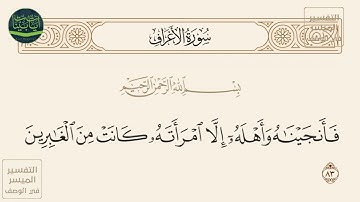 سُورَةُ الأَعْرَافِ
بِسْمِ اللَّهِ الرَّحْمَٰنِ الرَّحِيمِ
فَأَنجَيْنَٰهُ وَأَهْلَهُۥٓ إِلَّا ٱمْرَأَتَهُۥ كَانَتْ مِنَ ٱلْغَٰبِرِينَ
٨٣
التفسير
الميسر
في الوصف
التفسير
الميسر
في الوصف